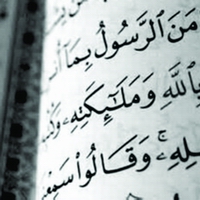 مَنَ ٱلرَّسُولُ بِمَآ أُن
بِٱللَّهِ وَمَلَٰٓئِكَتِهِۦ وَكُ
لِهِۦۚ وَقَالُوا۟ سَمِعْ